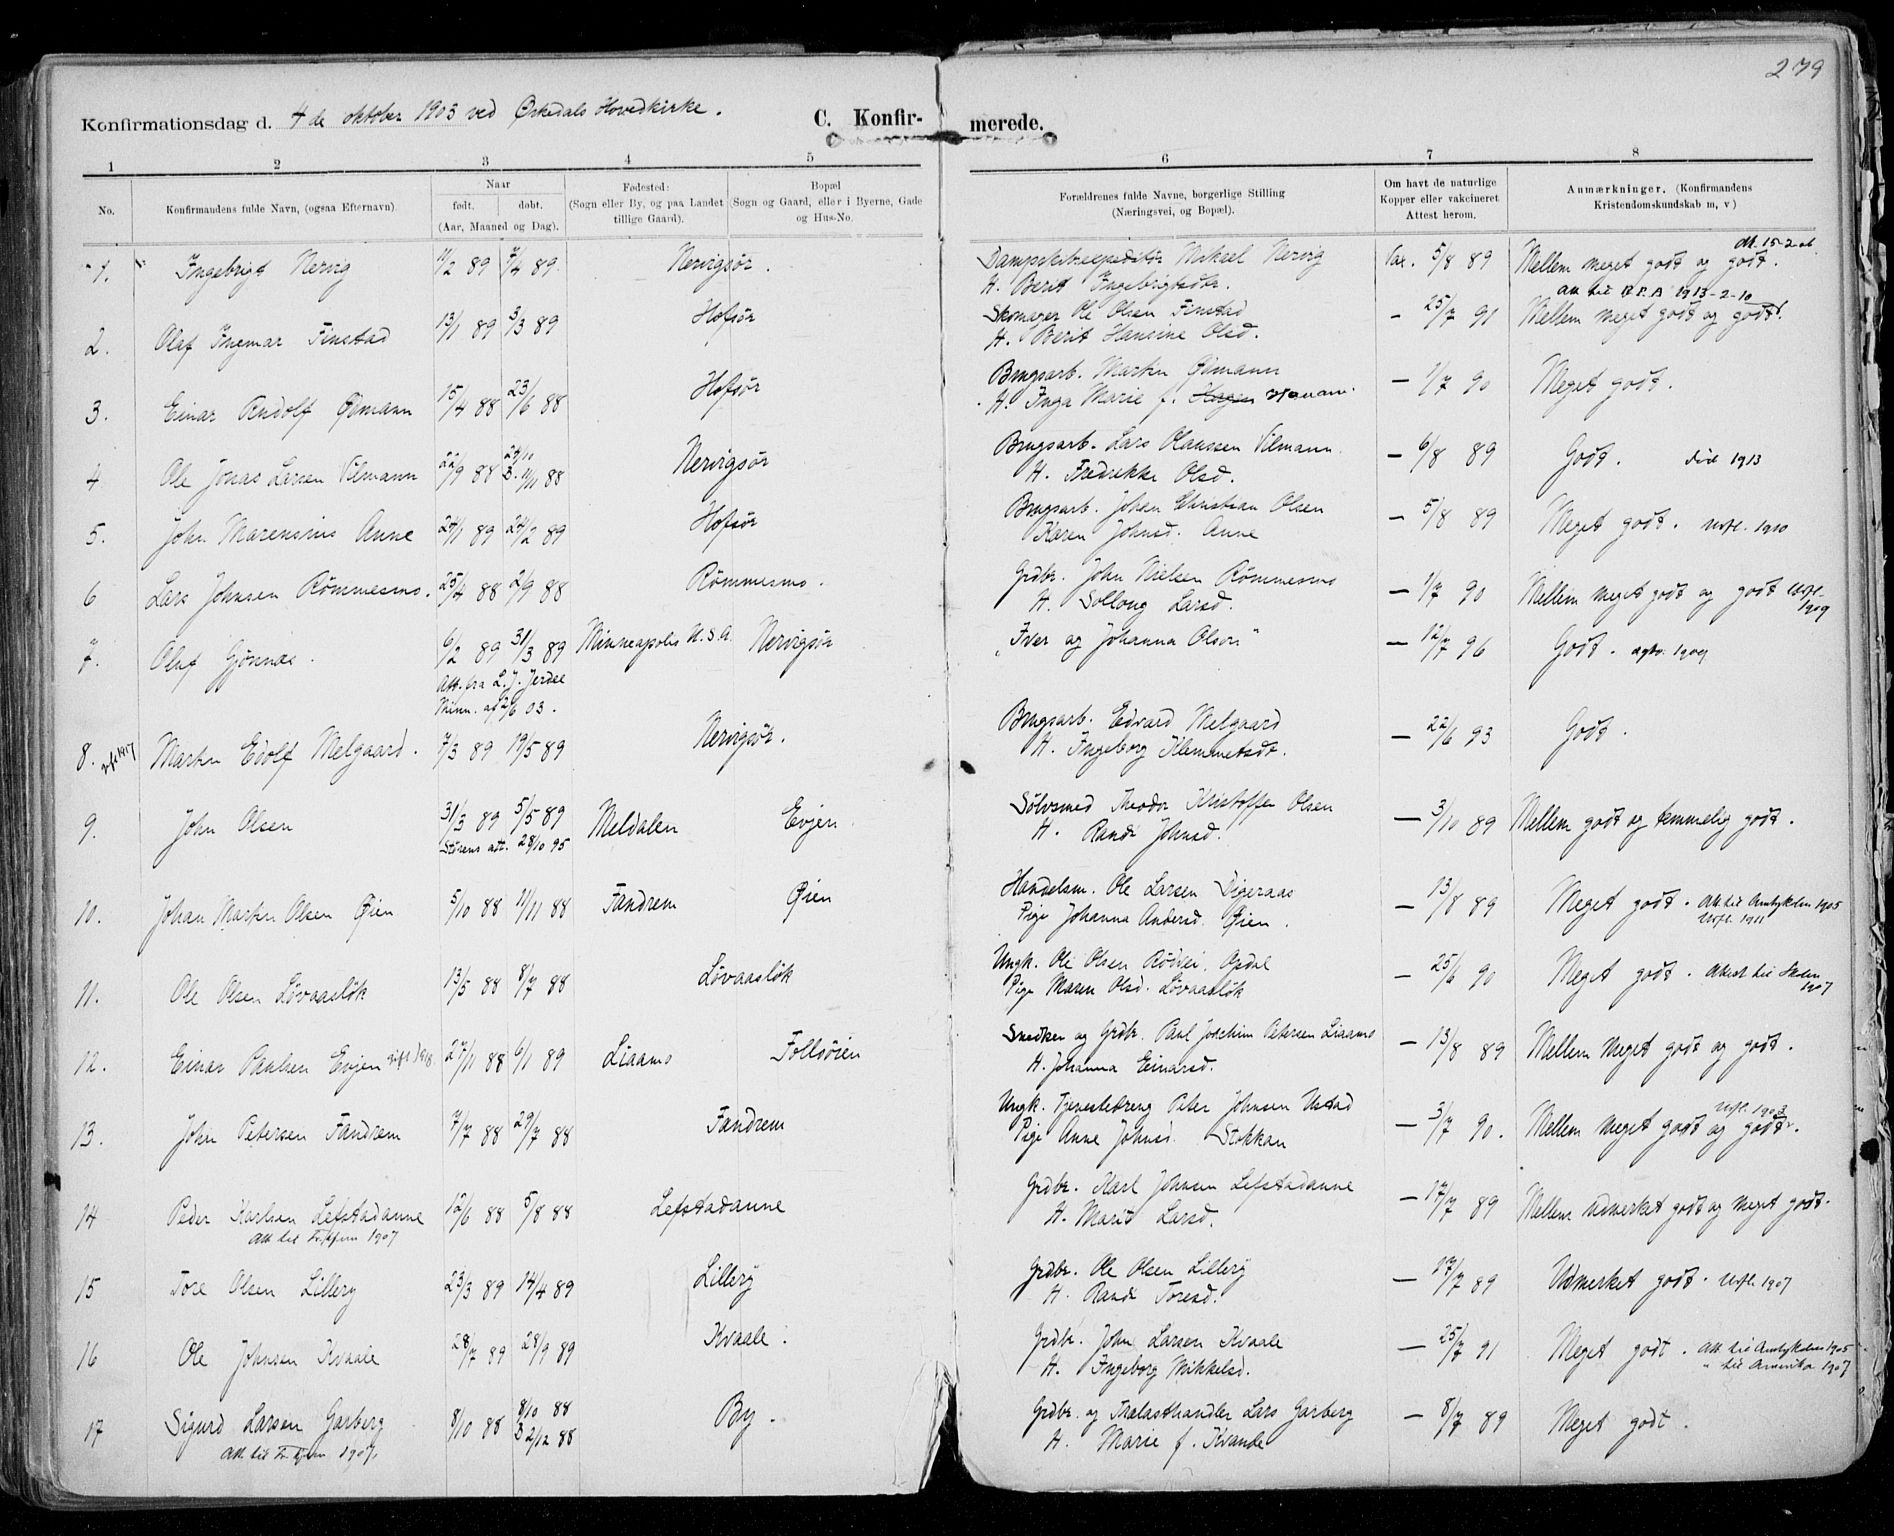 279
Konfirmationsdag d. 4 de oktober 1903 ved Örkedals Hovedkirke.
C. Konfirmerede.
1 2 3 4 5 6 7 8
No. Konfirmandens fulde Navn, (ogsaa Efternavn). Naar født. døbt. (Aar, Maaned og Dag). Fødested: (Sogn eller By, og paa Landet tillige Gaard). Bopæl (Sogn og Gaard, eller i Byerne, Gade og Hus-No. Forældrenes fulde Navne, borgerlige Stilling (Næringsvei, og Bopæl). Om havt de naturlige Kopper eller vakcineret Attest herom. Anmærkninger. (Konfirmandens Kristendomskundskab m, v)
1. Ingebrigt Nervig 11/2 89 7/4 89 Nervigsör. Dampskibsexpeditör Mikael Nervig Vax. 5/8 89 Mellem meget godt og godt.
H. Berit Ingebrigtsdtr.
2. Olaf Ingmar Finstad 13/1 89 3/3 89 Hofsör Skomager Ole Olsen Finstad - 25/7 91 Mellem meget godt og godt.
H. Berit Hansine Olsd.
3. Einar Rudolf Ödmann 15/4 88 23/6 88 Hofsör Brugsarb. Martin Ödmann - 1/7 90 Meget godt.
H. Inga Marie f. Hagen
4 Ole Jonas Larsen Vilmann 22/9 88 B. 11/11 88 Nervigsör Brugsarb. Lars Olaussen Vilmann - 6/8 89 Godt. 1913
H. Fredrikke Olsd.
5. John Marensius Anne 24/1 89 24/2 89 Hofsör Brugsarb. Johan Christian Olsen - 5/8 89 Meget godt. Utfl. 1910
Karen Johnsd. Anne
6 Lars Johnsen Römmesmo. 25/4 88 2/9 88 Römmesmo. Grdbr. John Nielsen Römmesmo - 1/7 90 Mellem meget godt og godt Utfl. 1909
H. Sollaug Larsd.
7. Oluf Gjönnes. 6/2 89 31/3 89 Minneapolis U.S.A. Nervigsör "Iver og Johanna Olson" - 12/7 96 Godt. 1909
Att. fra L. J. Jerdee
Minn. af 2/6 03.
8. Martin Edolf Melgaard. 7/3 89 19/5 89 Nervigsör. Brugsarb. Edvard Melgaard - 22/6 93 Godt.
H. Ingeborg Klemmetsdt.
9. John Olsen 31/3 89 5/5 89 Meldalen Evjen Sölvsmed Theodor Kristoffer Olsen - 3/10 89 Mellem godt og temmelig godt.
Störens att. 28/10 95 H. Randi Johnsd.
10. Johan Martin Olsen Öien 5/10 88 11/11 88 Fandrem Öien Handelsm. Ole Larsen Digeraas - 13/8 89 Meget godt. Att til Amtskolen 1905
Pige Johanna Andersd. Öien. Utfl. 1911
11. Ole Olsen Lövaaslök 13/5 88 8/7 88 Lövaaslök Ungk. Ole Olsen Rödvei, Opdal - 25/6 90 Meget godt. Attest til Skien 1907
Pige Maren Olsd. Lövaaslök
12. Einar Paulsen Evjen gift 1918 27/11 88 6/1 89 Liaamo Follsöien Snedker og Grdbr. Paul Joachim Petersen Liaamo - 13/8 89 Mellem meget godt og godt.
H. Johanna Einarsd.
13. John Petersen Fandrem 7/7 88 29/7 88 Fandrem Ungk. Tjenestedreng Peter Johnsen Ustad - 3/7 90. Mellem meget godt og godt. Utfl. 1903
Pige Anne Johnsd. Stokkan
14 Peder Karlsen Lefstadanne 12/6 88 5/8 88 Lefstadanne Grdbr. Karl Johnsen Lefstadanne - 17/7 89 Mellem udmerket godt og meget godt.
Att til Tr.hjem 1907 H. Marit Larsd.
15 Tore Olsen Lilleby 23/3 89 14/4 89 Lilleby Grdbr. Ole Olsen Lilleby - 17/7 89 Udmerket godt. Utfl. 1907
H. Randi Toresd.
16 Ole Johnsen Kvaale 28/7 89 28/9 89 Kvaale. Grdbr. John Larsen Kvaale - 25/7 91 Meget godt. Att til Amtskolen 1905
H. Ingeborg Mikkelsd. " til Amerika 1907
17 Sigurd Larsen Garberg 8/10 88 8/10 88 By. Grdbr. og Trælasthandler Lars Garberg - 8/7 89 Meget godt.
Att til Tr.hjem 1907. B 2/12 88 H. Marie f. Kvande